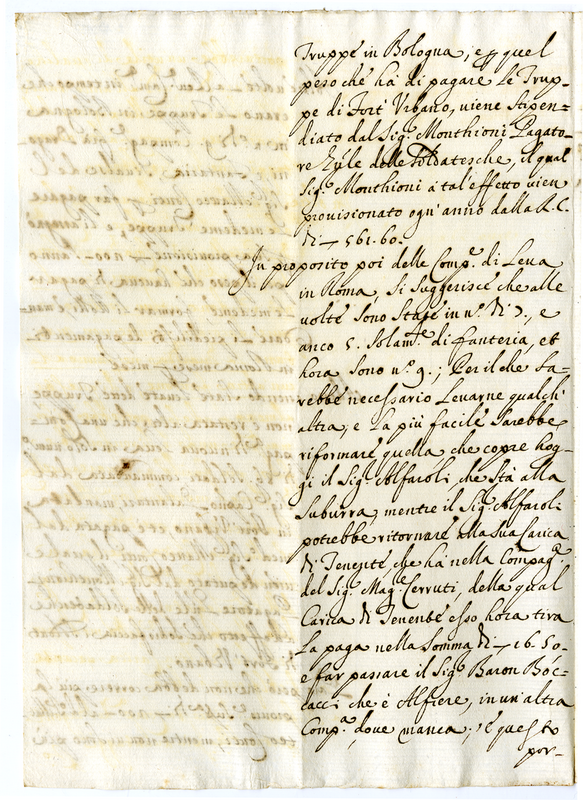 Truppe in Bologna; e p quel
peso che hà di pagare le Trup-
pe di Fort' Urbano, uiene stipen-
diato dal Sig.r Monthioni Pagato-
re delle Soldatesche, il qual
Sig.r Monthioni à tal' effetto uien
prouisionato ogn' anno dalla R. C.
di 561.60.
In proposito poi delle Comp.e di Leua
in Roma, si suggerisce che alle
uolte sono state in n.o di 3., e
anco 5. solam.te di fanteria, et
hora sono n.o 9.; Per il che sa-
rebbe necessario leuarne qualch'
altra, e la più facile sarebbe
riformare quella che copre hog-
gi il Sig.r Alfaroli, che stà alla
Suburra, mentre il Sig.r Alfaroli
potrebbe ritornare alla sua Carica
di Tenente, che hà nella Compag.a
del Sig.r Mag.e Cerruti, della qual
Carica di Tenente esso hora tira
la paga nella somma di 16.50-
e far passare il Sig.r Baron Boc-
cacci che è Alfiere, in un' altra
Comp.a doue manca; e questo
por-